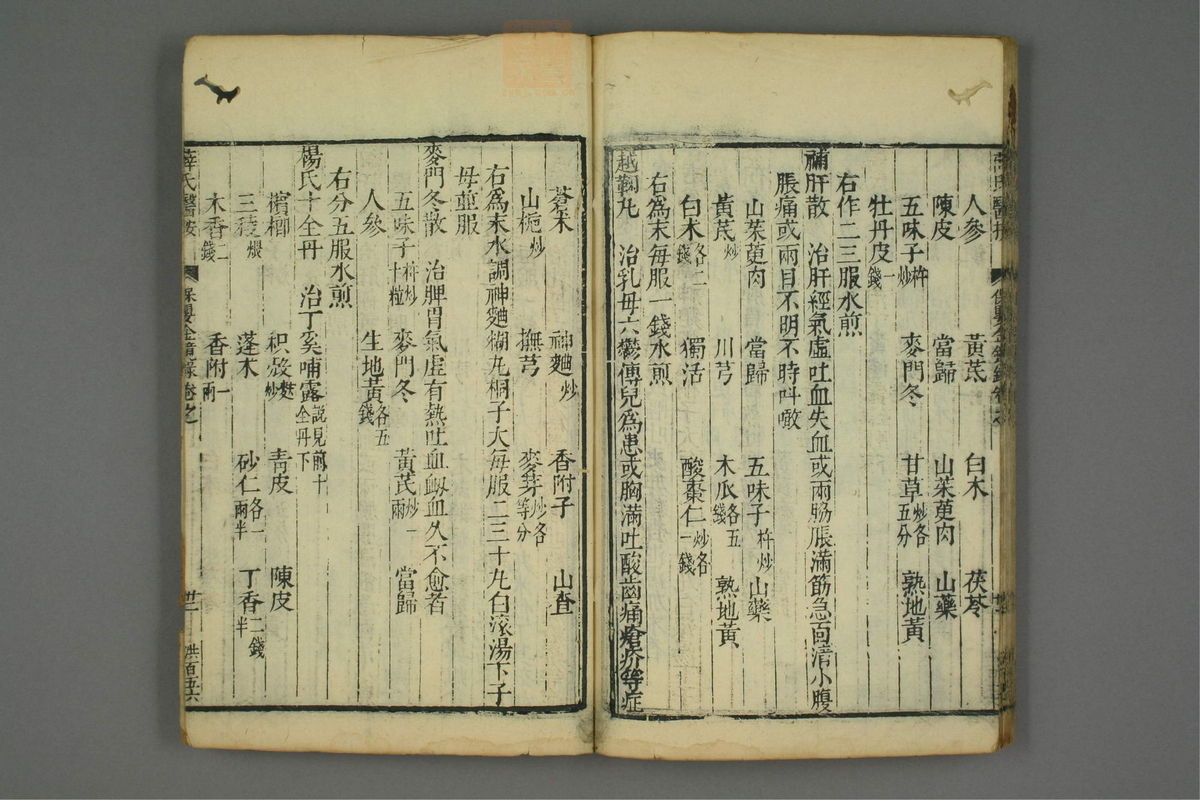 人參 黃芪 白朮 茯苓
陳皮 當歸 山茱萸肉 山藥
五味子杵炒 麥門冬 甘草炒各五分 熟地黃
牡丹皮一錢
右作二三服水煎
補肝散 治肝經氣虛吐血失血或兩脇脹滿筋急面清小腹
脹痛或兩目不明不時呌噉
山茱萸肉 當歸 五味子杵炒 山藥
黃芪炒 川芎 木瓜各五錢 熟地黃
白朮各二錢 獨活 酸棗仁炒各一錢
右爲末每服一錢水煎
越鞠丸 治乳母六鬱傳兒爲患或胸滿吐酸齒痛瘡疥等症
蒼朮 神麯炒 香附子 山查
山梔炒 撫芎 麥芽炒各等分
右爲末水調神麯糊丸桐子大每服二三十丸白滾湯下子
母並服
麥門冬散 治脾胃氣虛有熱吐血衂血久不愈者
五味子杵炒十粒 麥門冬 黃芪炒一兩 當歸
人參 生地黃各五錢
右分五服水煎
楊氏十全丹 治丁奚哺露說見前十全丹下
檳榔 枳殼麩炒 青皮 陳皮
三稜煨 蓬朮 砂仁各一兩半 丁香二錢半
木香二錢 香附一兩
薛氏醫按 保嬰金鏡錄卷之 世二 洪百五六